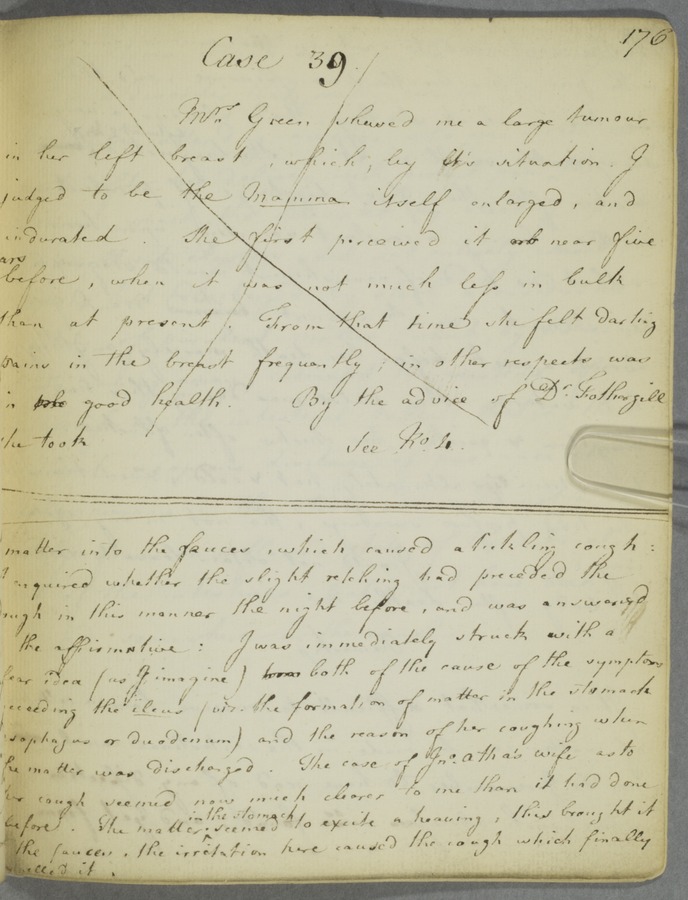 176
Case 39
Mrs Green shewed me a large tumour
in her left breast, which, by its situation. I
judged to be the Mamma itself enlarged, and
indurated. She first perceived it near five
ars
before, when it was not much less in bulk
than at present. From that time she felt darting
pains in the breast frequently; in other respects was
in good health. By the advice of Dr. Fothergill
she took see No. 4.
matter into the fauces, which caused a tickling cough:
I inquired whether the slight retching had preceded the
ough in this manner the night before, and was answered
the affirmative: I was immediately struck with a
lear idea (as I imagine) both of the cause of the symptoms
receeding the ileus (viz. the formation of matter in the stomach
esophagus or duodenum) and the reason of her coughing when
the matter was discharged. The case of Jno. Atha's wife as to
her cough seemed now much clearer to me than it had done
in the stomach
before. The matter seemed to excite a heaving, this brought it
the fauces, the irritation here caused the cough which finally
it.